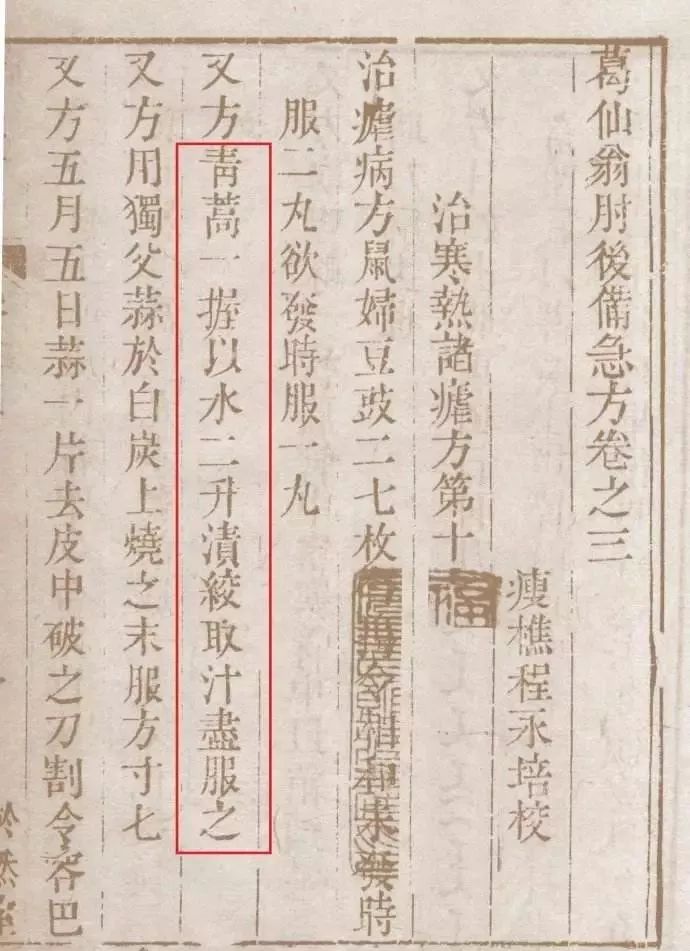 葛仙翁肘後備急方卷之三
瘦樵程永培校
治寒熱諸瘧方第十
治瘧病方鼠婦豆豉二七枚令未發時
服二丸欲發時服一丸
又方青蒿一握以水二升漬絞取汁盡服之
又方用獨父蒜於白炭上燒之末服方寸匕
又方五月五日蒜一片去皮中破之刀割令容巴